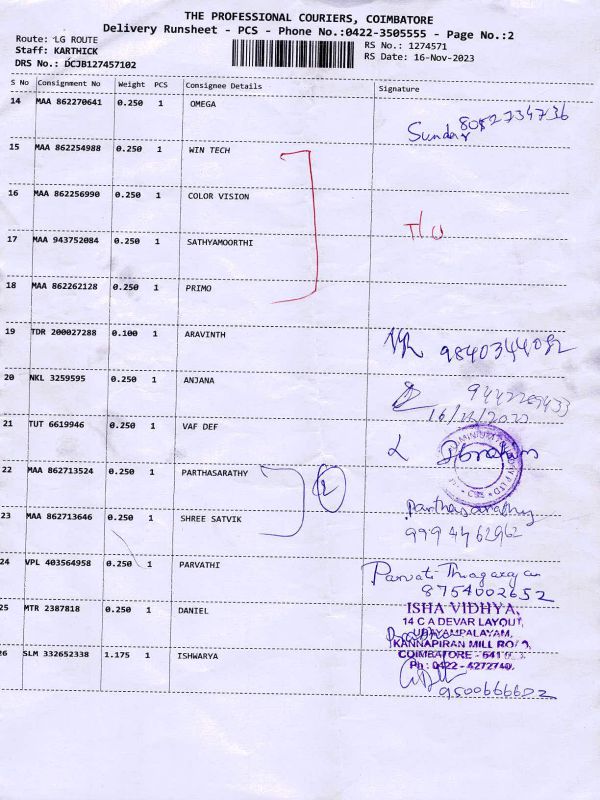 THE PROFESSIONAL COURIERS, COIMBATORE
Delivery Runsheet - PCS - Phone No.:0422-3505555 - Page No.:2
Route: LG ROUTE
RS No.: 1274571
Staff: KARTHICK
RS Date: 16-Nov-2023
DRS No.: DCJB127457102
S No Consignment No Weight PCS Consignee Details Signature
14 MAA 862270641 0.250 1 OMEGA
Sunday
15 MAA 862254988 0.250 1 WIN TECH
16 MAA 862256990 0.250 1 COLOR VISION
17 MAA 943752084 0.250 1 SATHYAMOORTHI
18 MAA 862262128 0.250 1 PRIMO
19 TDR 200027288 0.100 1 ARAVINTH
20 NKL 3259595 0.250 1 ANJANA
21 TUT 6619946 0.250 1 VAF DEF
Ibraham
22 MAA 862713524 0.250 1 PARTHASARATHY
2
Parthasarathy
9994462962
23 MAA 862713646 0.250 1 SHREE SATVIK
24 VPL 403564958 0.250 1 PARVATHI
Parvati Thiagarajan
8754002652
25 MTR 2387818 0.250 1 DANIEL
ISHA VIDHYA,
14 C A DEVAR LAYOUT,
UDAYAMPALAYAM,
KANNAPIRAN MILL ROAD,
COIMBATORE - 641
Ph : 0422 - 4272740.
26 SLM 332652338 1.175 1 ISHWARYA
9500666602